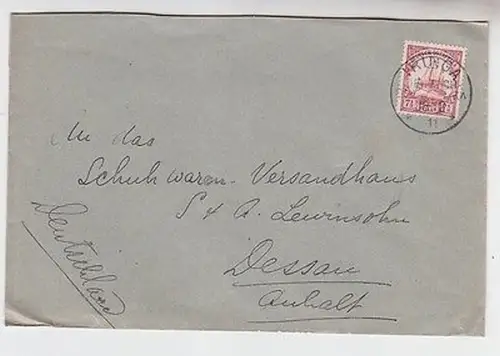 An das
Schuhwaren-Versandhaus
S & A. Lewinsohn
Dessau
Anhalt
Deutschland
7½
11